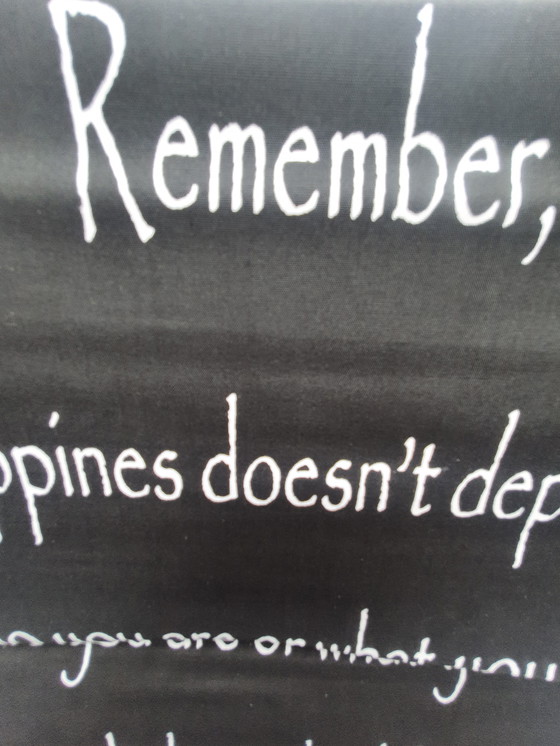 Remember,
ppines doesn't dep
you are or what you